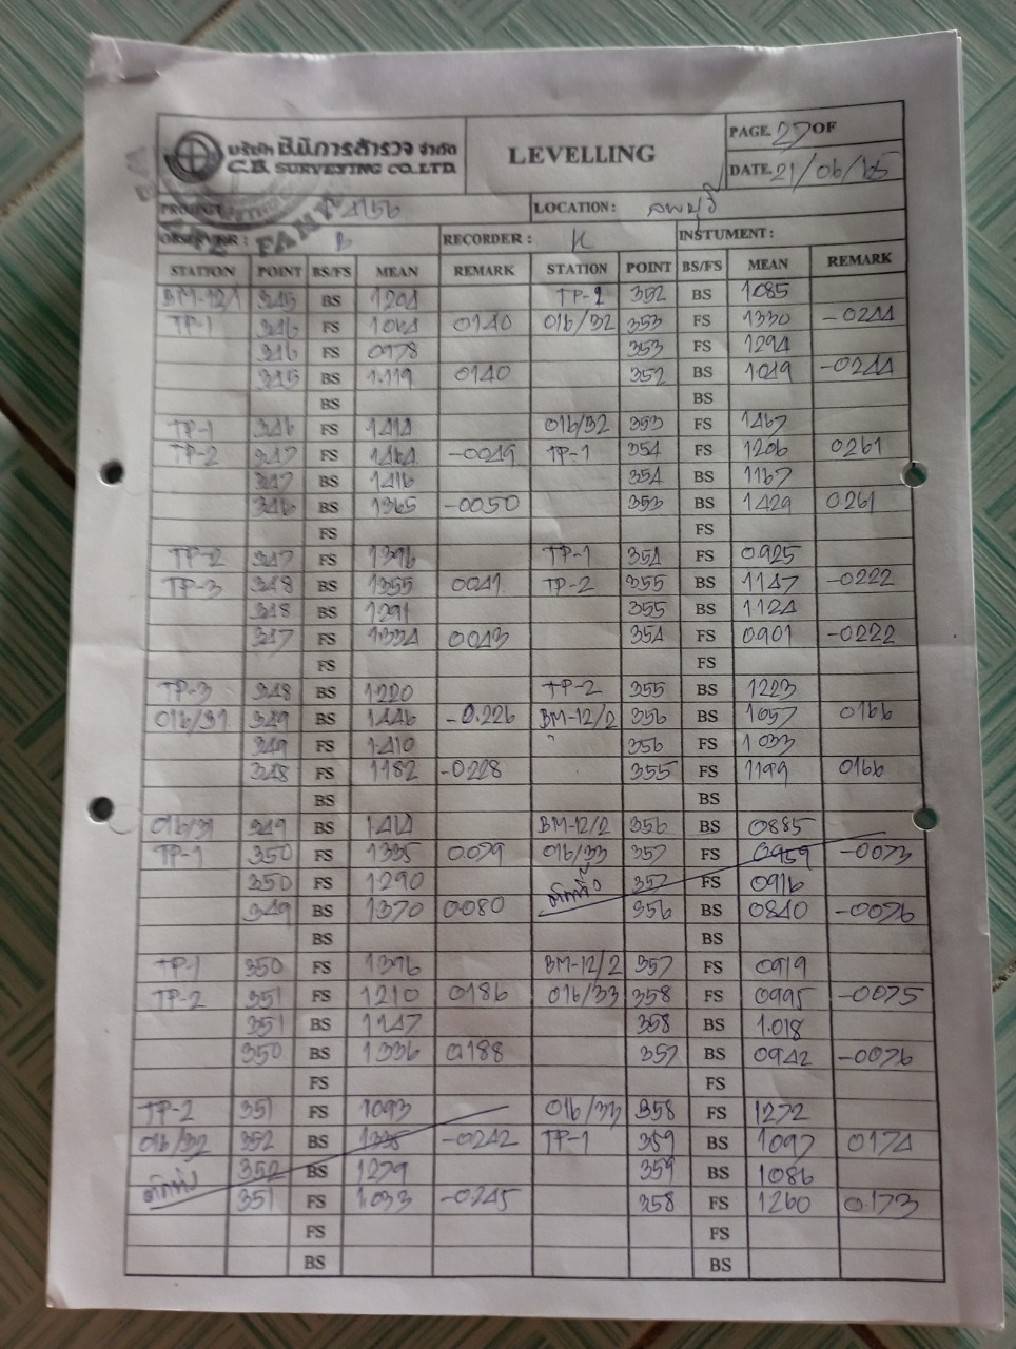 บริษัท ซีบีการสำรวจ จำกัด
C.B. SURVEYING CO.,LTD
LEVELLING
PAGE 27 OF
DATE 21/06/65
PROJECT
LOCATION: ลพบุรี
OBSERVER : B RECORDER : K INSTUMENT :
STATION POINT BS/FS MEAN REMARK STATION POINT BS/FS MEAN REMARK
BM-12/1 345 BS 1204 TP-2 352 BS 1085
TP-1 346 FS 1064 0140 016/32 353 FS 1330 -0244
346 FS 0978 353 FS 1294
345 BS 1.119 0140 352 BS 1049 -0244
BS BS
TP-1 346 FS 1414 016/32 353 FS 1467
TP-2 347 FS 1464 -0049 TP-1 354 FS 1206 0261
347 BS 1416 354 BS 1167
346 BS 1365 -0050 353 BS 1429 0261
FS FS
TP-2 347 FS 1396 TP-1 354 FS 0925
TP-3 348 BS 1355 0041 TP-2 355 BS 1147 -0222
348 BS 1291 355 BS 1124
347 FS 1334 0043 354 FS 0901 -0222
FS FS
TP-3 348 BS 1220 TP-2 355 BS 1223
016/31 349 BS 1446 -0.226 BM-12/2 356 BS 1057 0166
349 FS 1410 356 FS 1033
348 FS 1182 -0228 355 FS 1199 0166
BS BS
016/31 349 BS 1414 BM-12/2 356 BS 0885
TP-1 350 FS 1335 0079 016/33 357 FS 0959 -0073
350 FS 1290 357 FS 0916
349 BS 1370 0.080 356 BS 0840 -0076
BS BS
TP-1 350 FS 1396 BM-12/2 357 FS 0919
TP-2 351 FS 1210 0186 016/33 358 FS 0995 -0075
351 BS 1147 358 BS 1.018
350 BS 1336 0188 357 BS 0942 -0076
FS FS
TP-2 351 FS 1093 016/33 358 FS 1272
016/32 352 BS 1335 -0242 TP-1 359 BS 1097 0174
352 BS 1279 359 BS 1086
351 FS 1.033 -0245 358 FS 1260 0.173
FS FS
BS BS